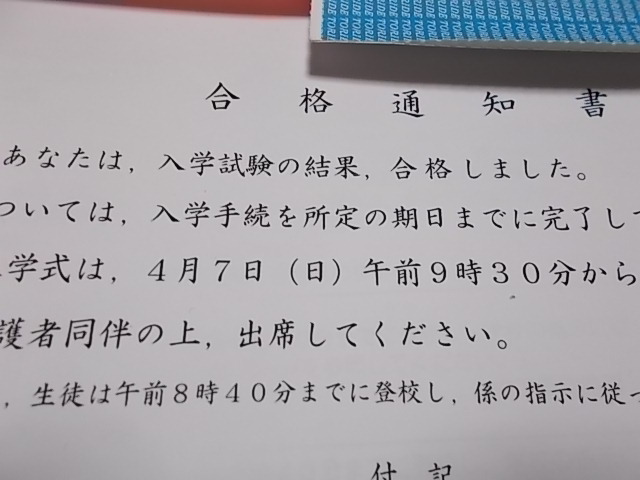 RUDE TORI
合格通知書
あなたは，入学試験の結果，合格しました。
ついては，入学手続を所定の期日までに完了して
学式は，４月７日（日）午前９時３０分から
護者同伴の上，出席してください。
，生徒は午前８時４０分までに登校し，係の指示に従っ
付記